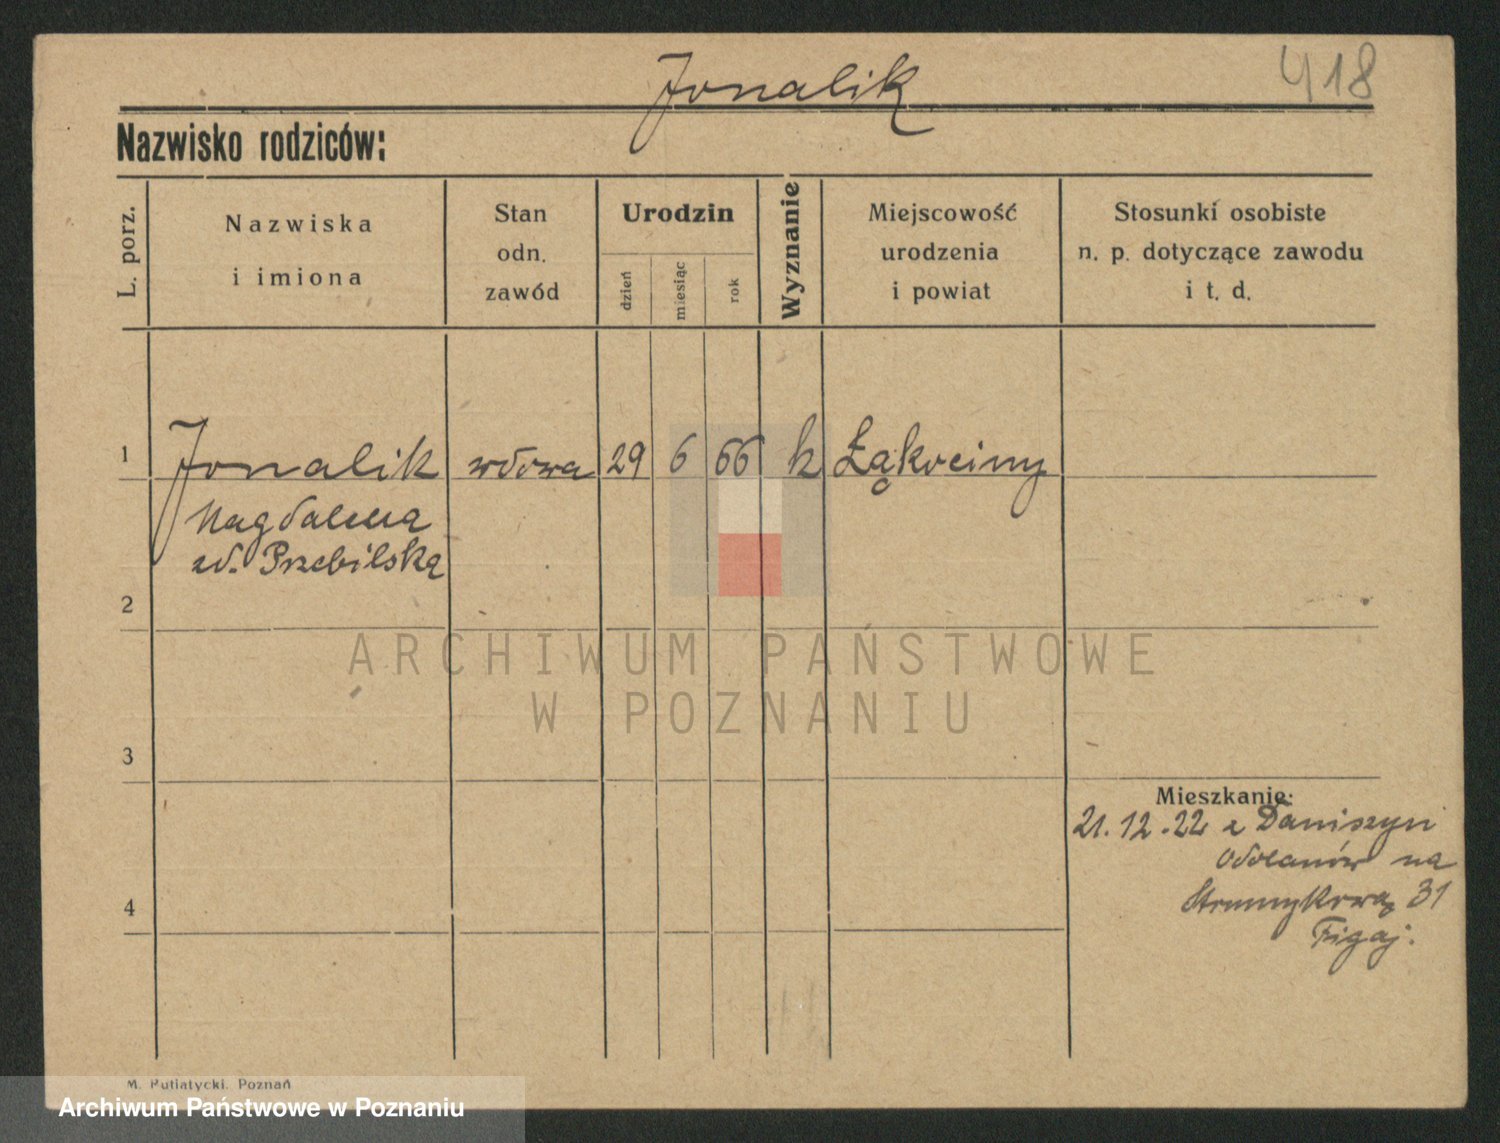 Jonalik 418
Nazwisko rodziców:
L. porz.
Nazwiska
i imiona
Stan
odn.
zawód
Urodzin
dzień
miesiąc
rok
Wyznanie
Miejscowość
urodzenia
i powiat
Stosunki osobiste
n. p. dotyczące zawodu
i t. d.
1 Jonalik wdowa 29 6 66 k Łąkociny
Magdalena
zd. Przebilska
2
3
4
Mieszkanie:
21. 12. 22 z Daniszyn
Odolanów na
Strumykową 31
Figaj.
M. Putiatycki. Poznań
ARCHIWUM PAŃSTWOWE
W POZNANIU
Archiwum Państwowe w Poznaniu